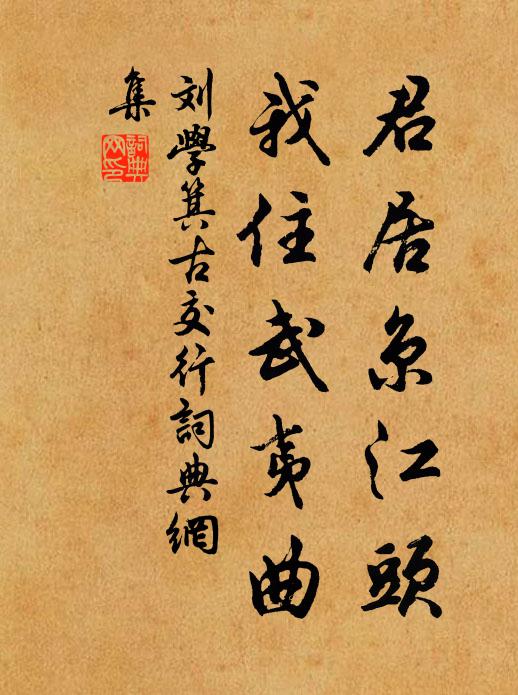 君居京江頭
我住武夷曲
刘學箕古交行詞典網
集
詞典
网印